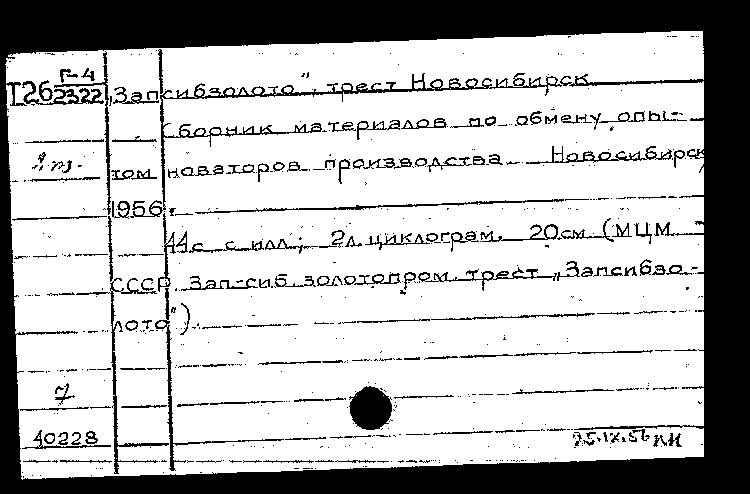 Г-4
Т26 2322 „Запсибзолото", трест Новосибирск
Сборник материалов по обмену опы-
том новаторов производства Новосибирск,
1956.
44с с илл.; 2л. циклограм. 20см (МЦМ
СССР Зап-сиб. золотопром. трест „Запсибзо-
лото").
7
40228
25.IX.56